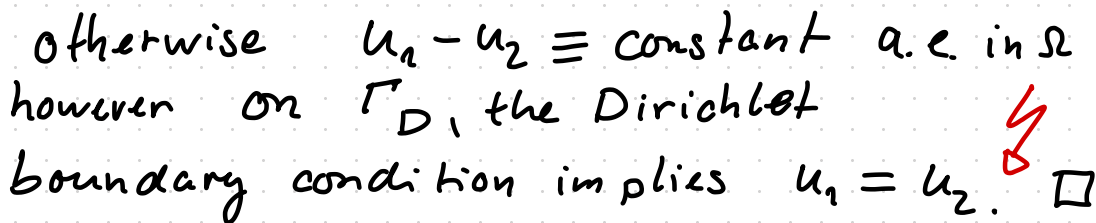 otherwise u₁ - u₂ ≡ constant a.e. in Ω
however on Γ_D, the Dirichlet
boundary condition implies u₁ = u₂. □